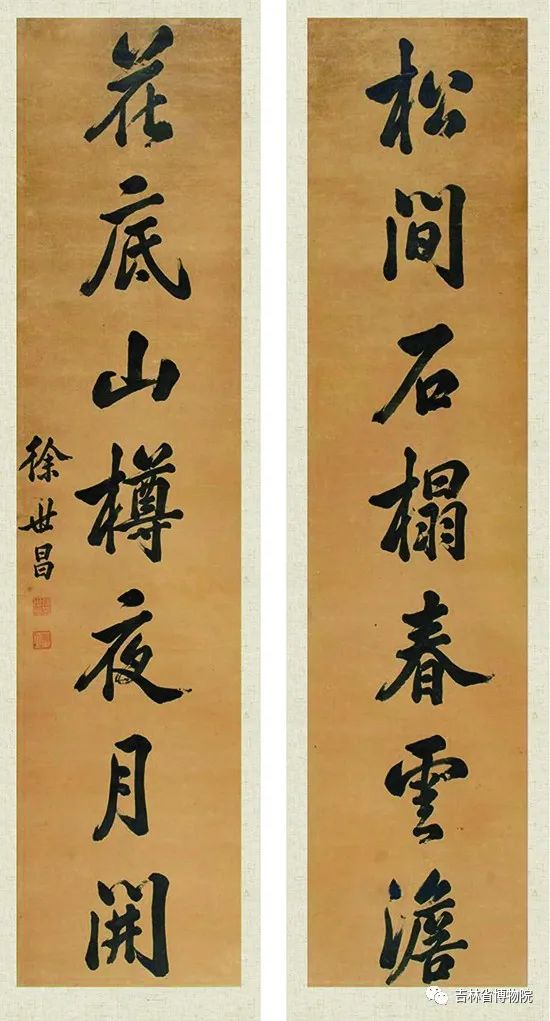 松間石榻春雲澹
花底山樽夜月開
徐世昌
吉林省博物院